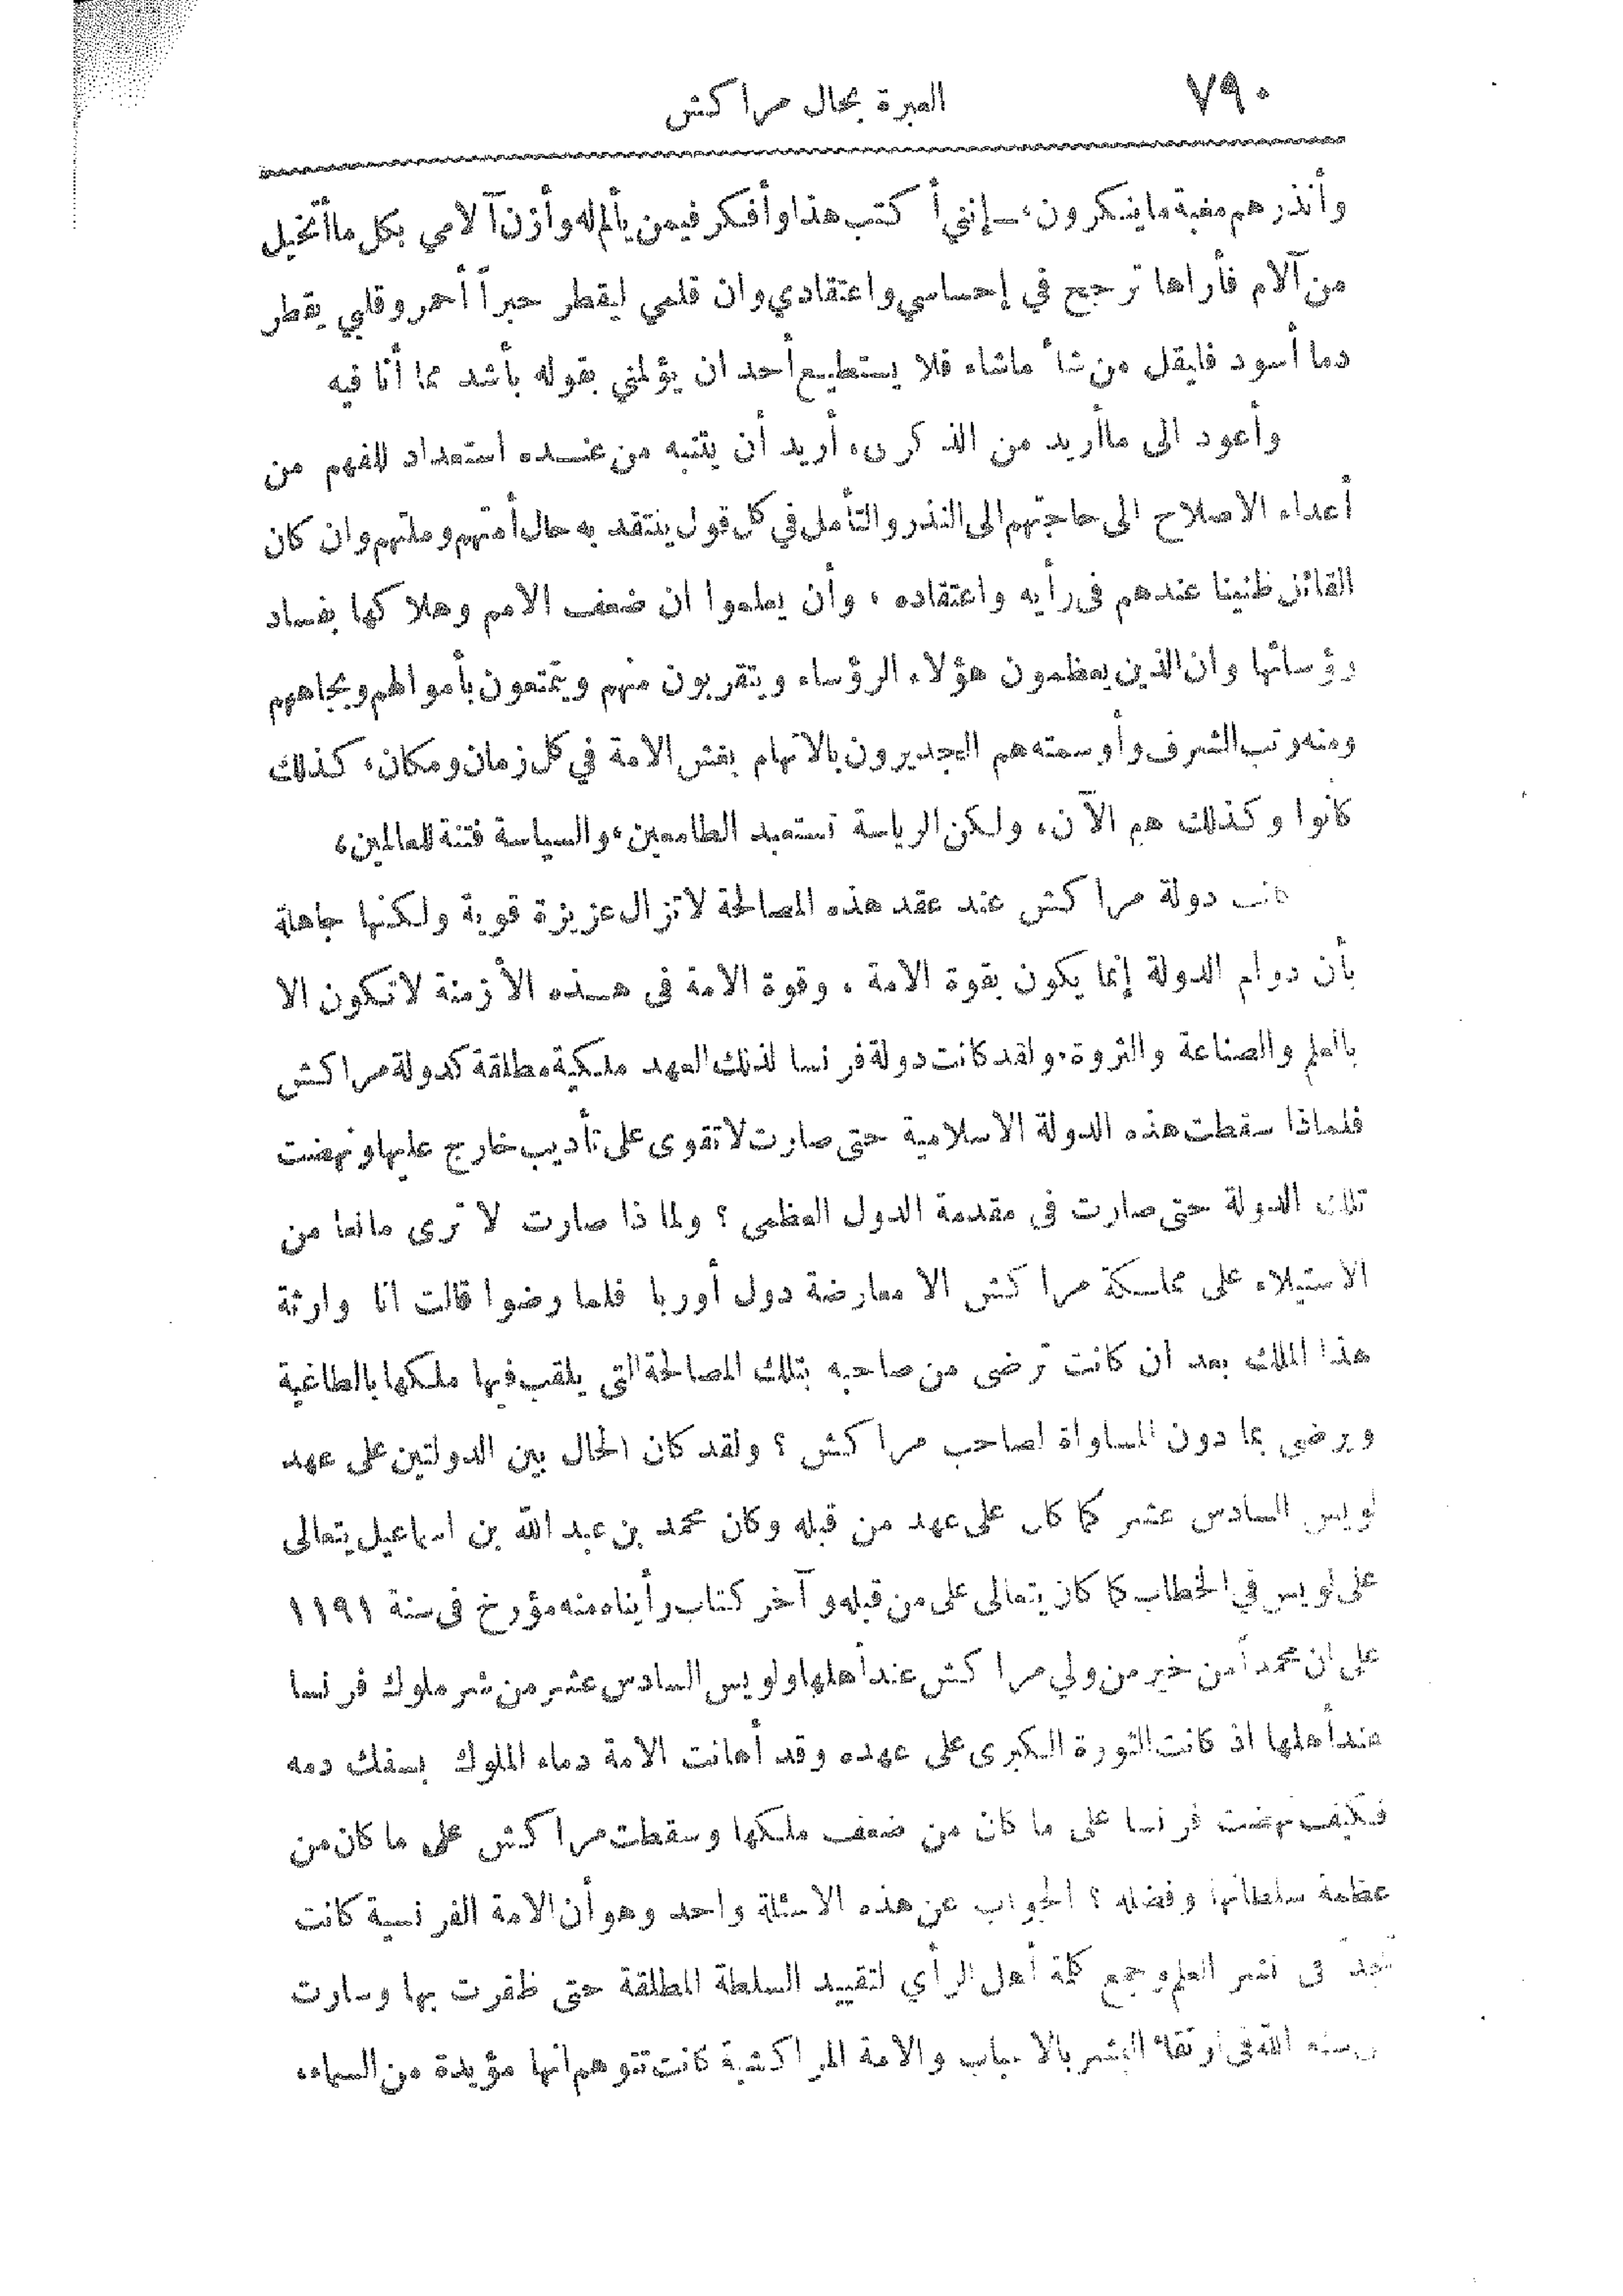 ٧٩٠ العبرة بحال مراكش
وأنذرهم مغبة ما ينكرون، ــ إنني أكتب هذا وأفكر فيمن يألم له وأزن آلامي بكل ما أتخيل
من آلام فأراها ترجح في إحساسي واعتقادي وان قلمي ليقطر حبراً أحمر وقلبي يقطر
دما أسود فليقل من شأ ماشاء فلا يستطيع أحد ان يؤلمني بقوله بأشد مما أنا فيه
وأعود الى ما أريد من الذكرى، أريد أن يتنبه من عنده استعداد للفهم من
أعداء الاصلاح الى حاجتهم الى النذر والتأمل في كل قول ينتقد به حال أمتهم وملتهم وان كان
القائل ظنينا عندهم فى رأيه واعتقاده ، وأن يعلموا ان ضعف الامم وهلاكها بفساد
رؤسائها وان الذين يعظمون هؤلاء الرؤساء ويتقربون منهم ويتمتعون بأموالهم وبجاههم
ومنه رتب الشرف وأوسمته هم الجديرون بالاتهام بغش الامة في كل زمان ومكان، كذلك
كانوا وكذلك هم الآن، ولكن الرياسة تستعبد الطامعين، والسياسة فتنة للعالمين،
دولة مراكش عند عقد هذه المصالحة لا تزال عزيزة قوية ولكنها جاهلة
بأن دوام الدولة إنما يكون بقوة الامة ، وقوة الامة فى هذه الأزمنة لا تكون الا
بالعلم والصناعة والثروة، ولقد كانت دولة فرنسا لذلك العهد ملكية مطلقة كدولة مراكش
فلماذا سقطت هذه الدولة الاسلامية حتى صارت لا تقوى على تأديب خارج عليها ونهضت
تلك الدولة حتى صارت فى مقدمة الدول العظمى ؟ ولما ذا صارت لا ترى مانعا من
الاستيلاء على مملكة مراكش الا معارضة دول أوربا فلما رضوا قالت انا وارثة
هذا الملك بعد ان كانت ترضى من صاحبه بتلك المصالحة التي يلقب فيها ملكها بالطاغية
ويرضى بما دون المساواة لصاحب مراكش ؟ ولقد كان الحال بين الدولتين على عهد
لويس السادس عشر كما كان على عهد من قبله وكان محمد بن عبد الله بن اسماعيل يتعالى
على لويس في الخطاب كما كان يتعالى على من قبله وآخر كتاب رأيناه منه مؤرخ فى سنة ١١٩١
على ان محمداً من خير من ولي مراكش عند أهلها ولويس السادس عشر من شر ملوك فرنسا
عند أهلها اذ كانت الثورة الكبرى على عهده وقد أهانت الامة دماء الملوك بسفك دمه
فكيف نهضت فرنسا على ما كان من ضعف ملكها وسقطت مراكش على ما كان من
عظمة سلطانها وفضله ؟ الجواب عن هذه الاسئلة واحد وهو أن الامة الفرنسية كانت
تجدّ فى نشر العلم وجمع كلمة أهل الرأي لتقييد السلطة المطلقة حتى ظفرت بها وسارت
الله في ارتقاء البشر بالاسباب والامة المراكشية كانت تتوهم انها مؤيدة من السماء،